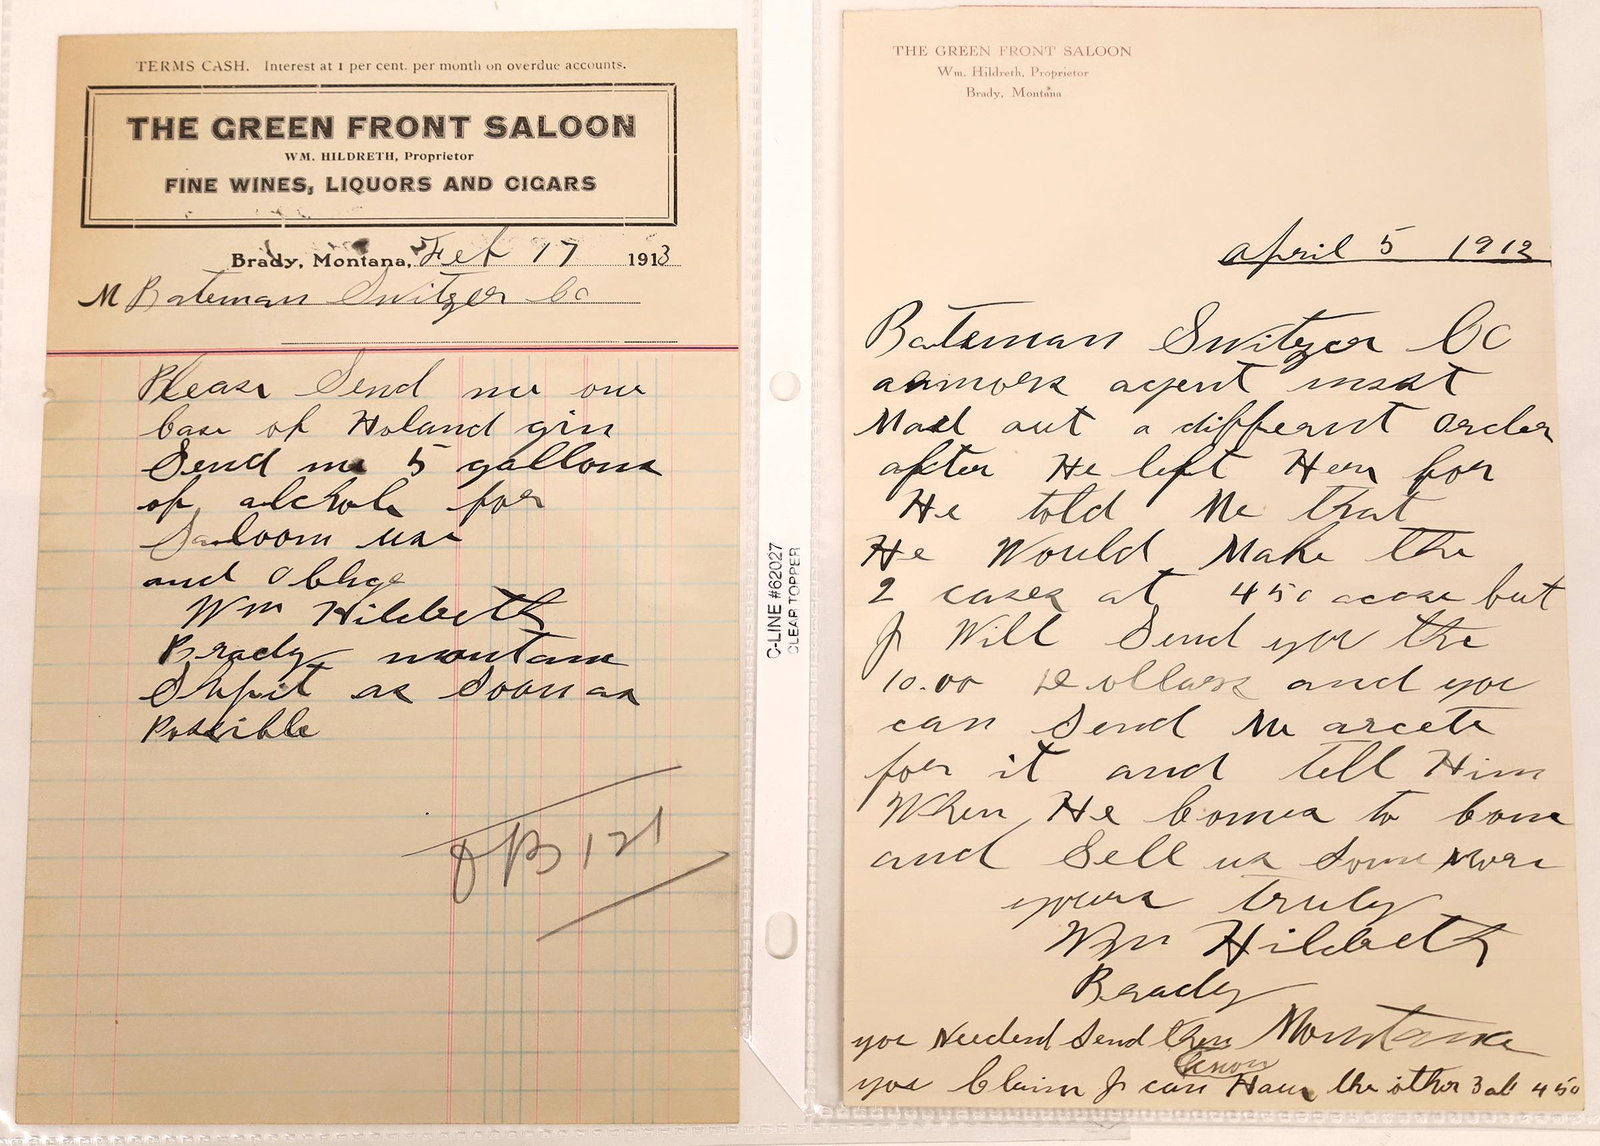 TERMS CASH. Interest at 1 per cent. per month on overdue accounts.
THE GREEN FRONT SALOON
WM. HILDRETH, Proprietor
FINE WINES, LIQUORS AND CIGARS
Brady, Montana, Feb 17 1913
M Bateman Switzer Co
Please Send me one
case of Holand gin
Send me 5 gallons
of alchole for
Saloom use
and Oblige
Wm Hildreth
Brady montana
Shpit as soon as
Possible
C-LINE #62027
CLEAR TOPPER
THE GREEN FRONT SALOON
Wm. Hildreth, Proprietor
Brady, Montana
april 5 1913
Bateman Switzer Co
agent
Mad out a different Order
after He left Her for
He told Me that
He Would Make the
2 cases at 450 acase but
I Will Send you the
10.00 Dollars and you
can Send Me arcete
for it and tell Him
When He Comes to Come
and Sell us Some More
yours truly
Wm Hildreth
Brady
Montana
you Needend Send
you Claim I can Have the other 3 at 450